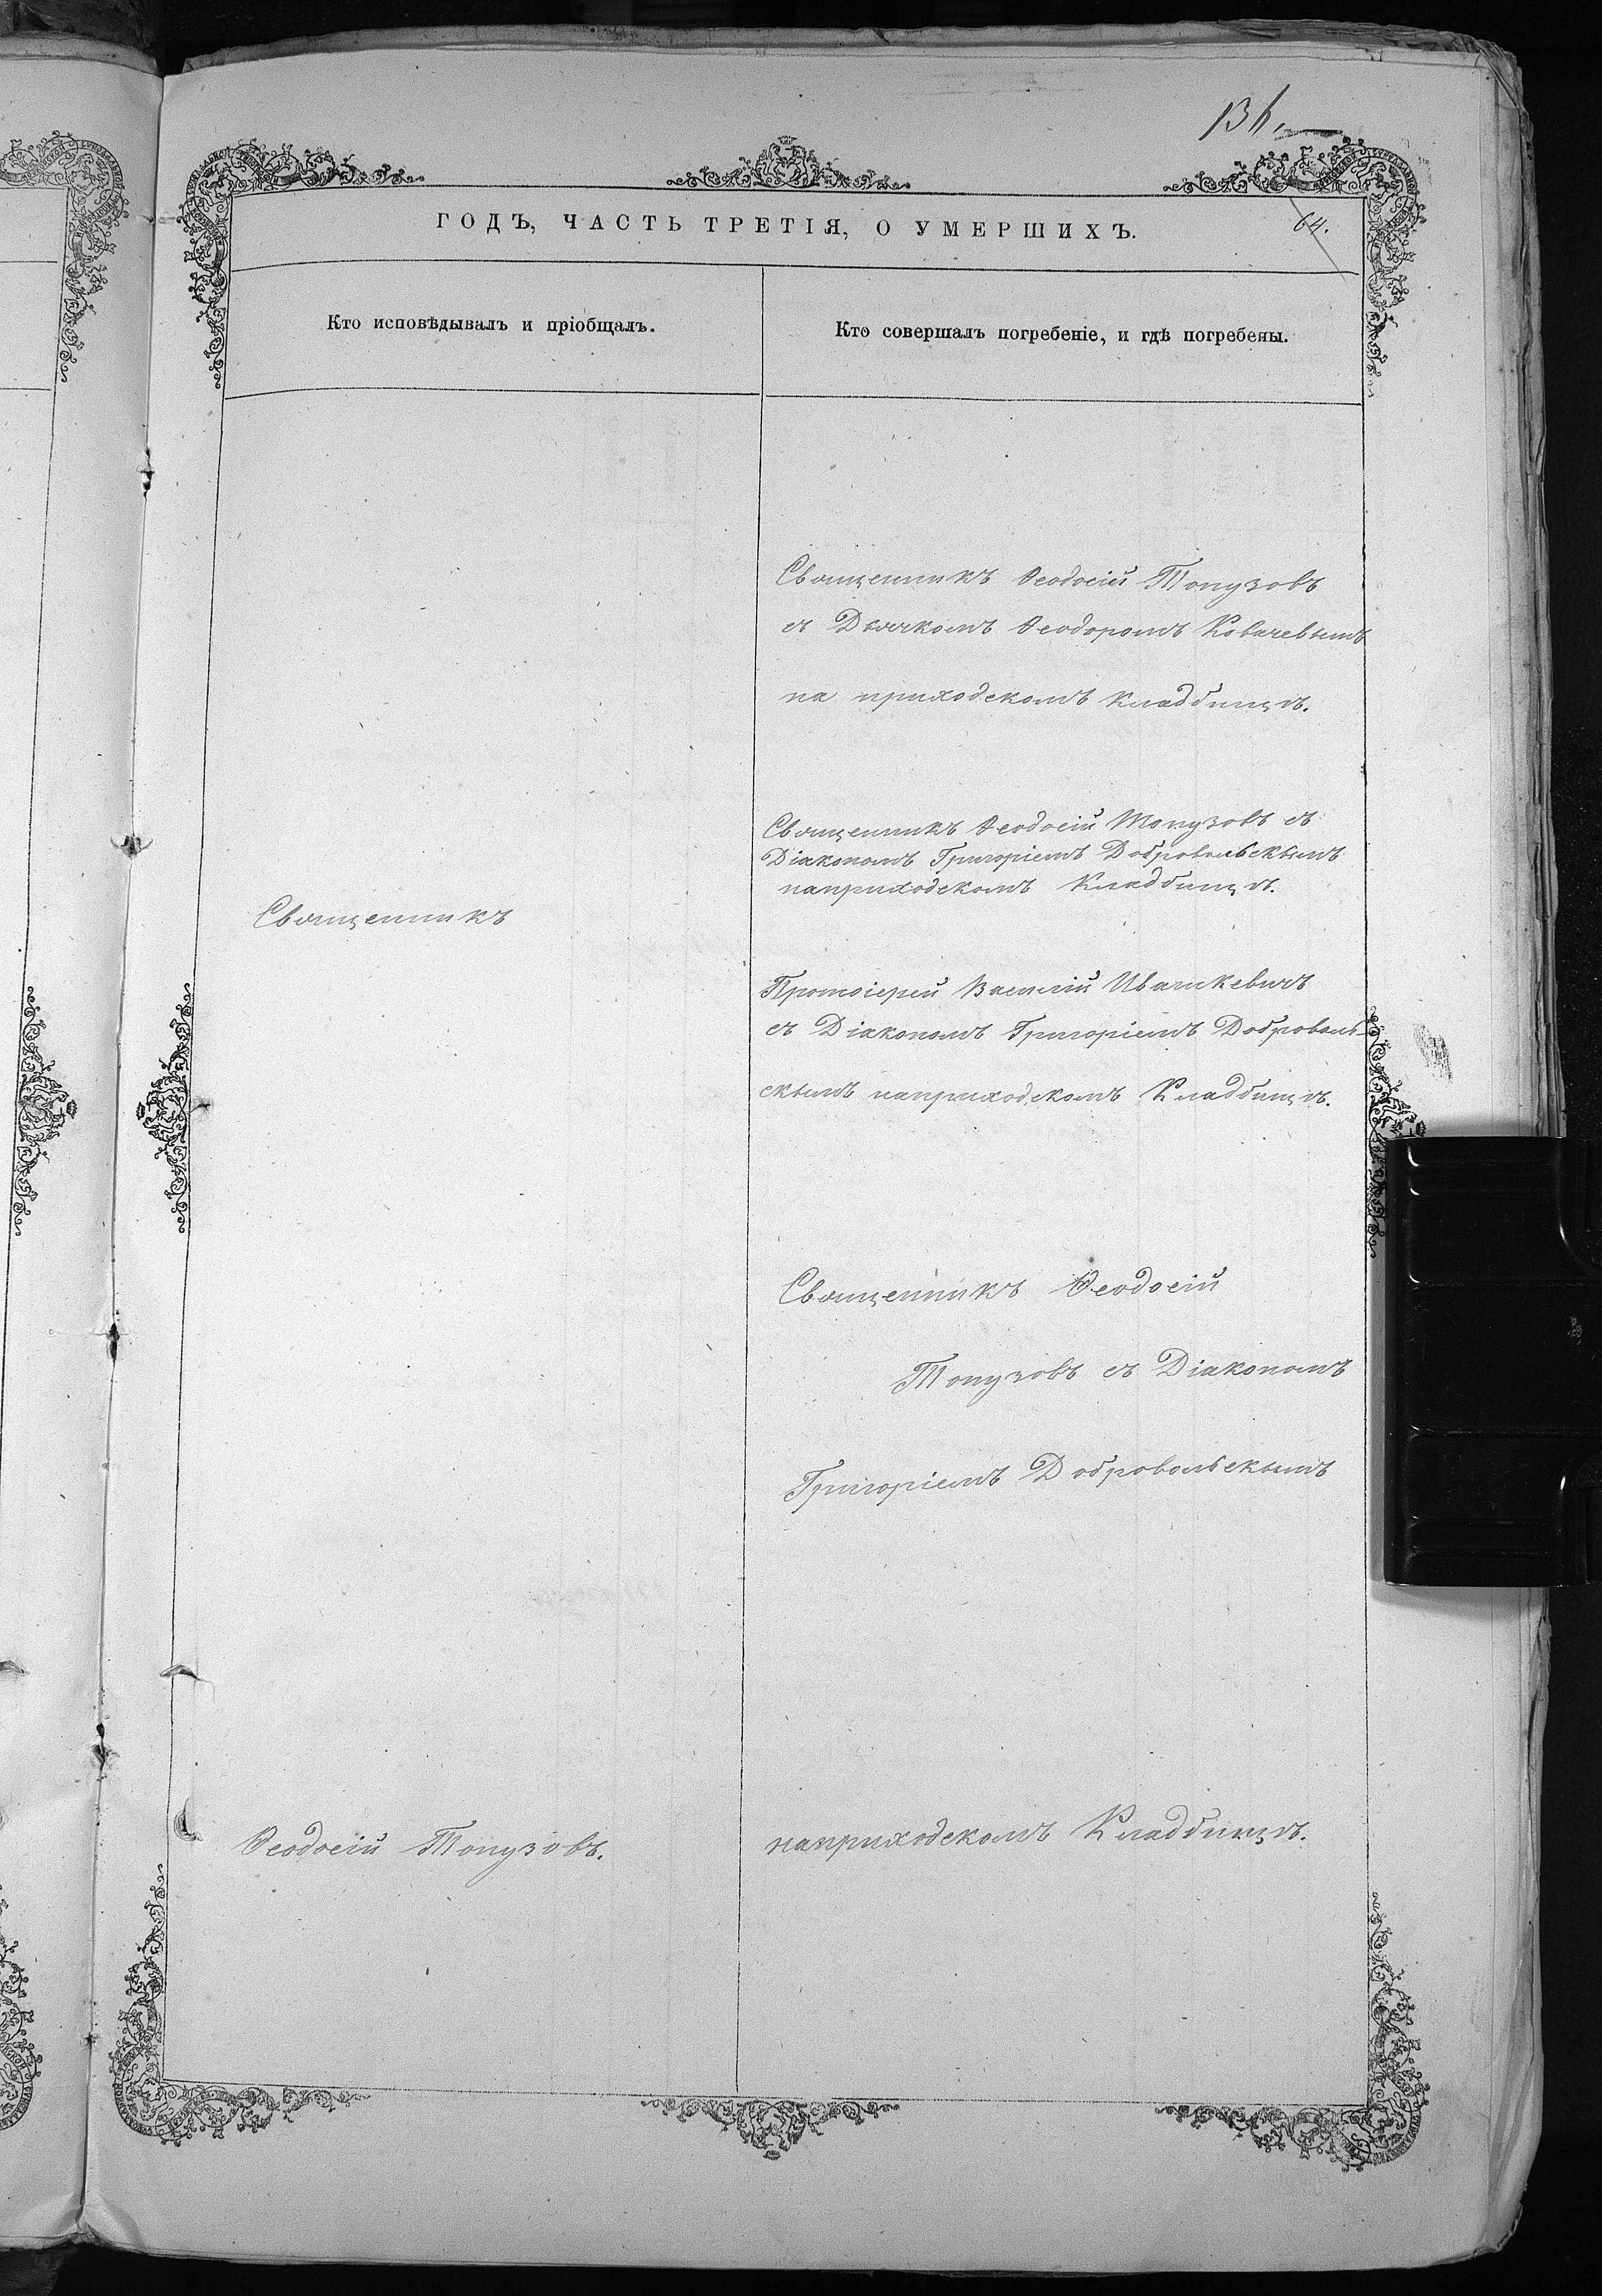 64.
ГОДЪ, ЧАСТЬ ТРЕТІЯ, О УМЕРШИХЪ.
Кто исповѣдывалъ и пріобщалъ.
Кто совершалъ погребеніе, и гдѣ погребены.
Священникъ Ѳеодосій Топузовъ
съ Дьячкомъ Ѳеодоромъ Ковачевымъ
на приходскомъ кладбищѣ.
Священникъ Ѳеодосій Топузовъ съ
Діакономъ Григоріемъ Добровольскымъ
наприходскомъ Кладбищѣ.
Священникъ
Протоіерей Василій
съ Діакономъ Григоріемъ Доброволь-
скымъ наприходскомъ Кладбищѣ.
Священникъ Ѳеодосій
Топузовъ съ Діакономъ
Григоріемъ Добровольскымъ
Ѳеодосій Топузовъ.
наприходскомъ Кладбищѣ.